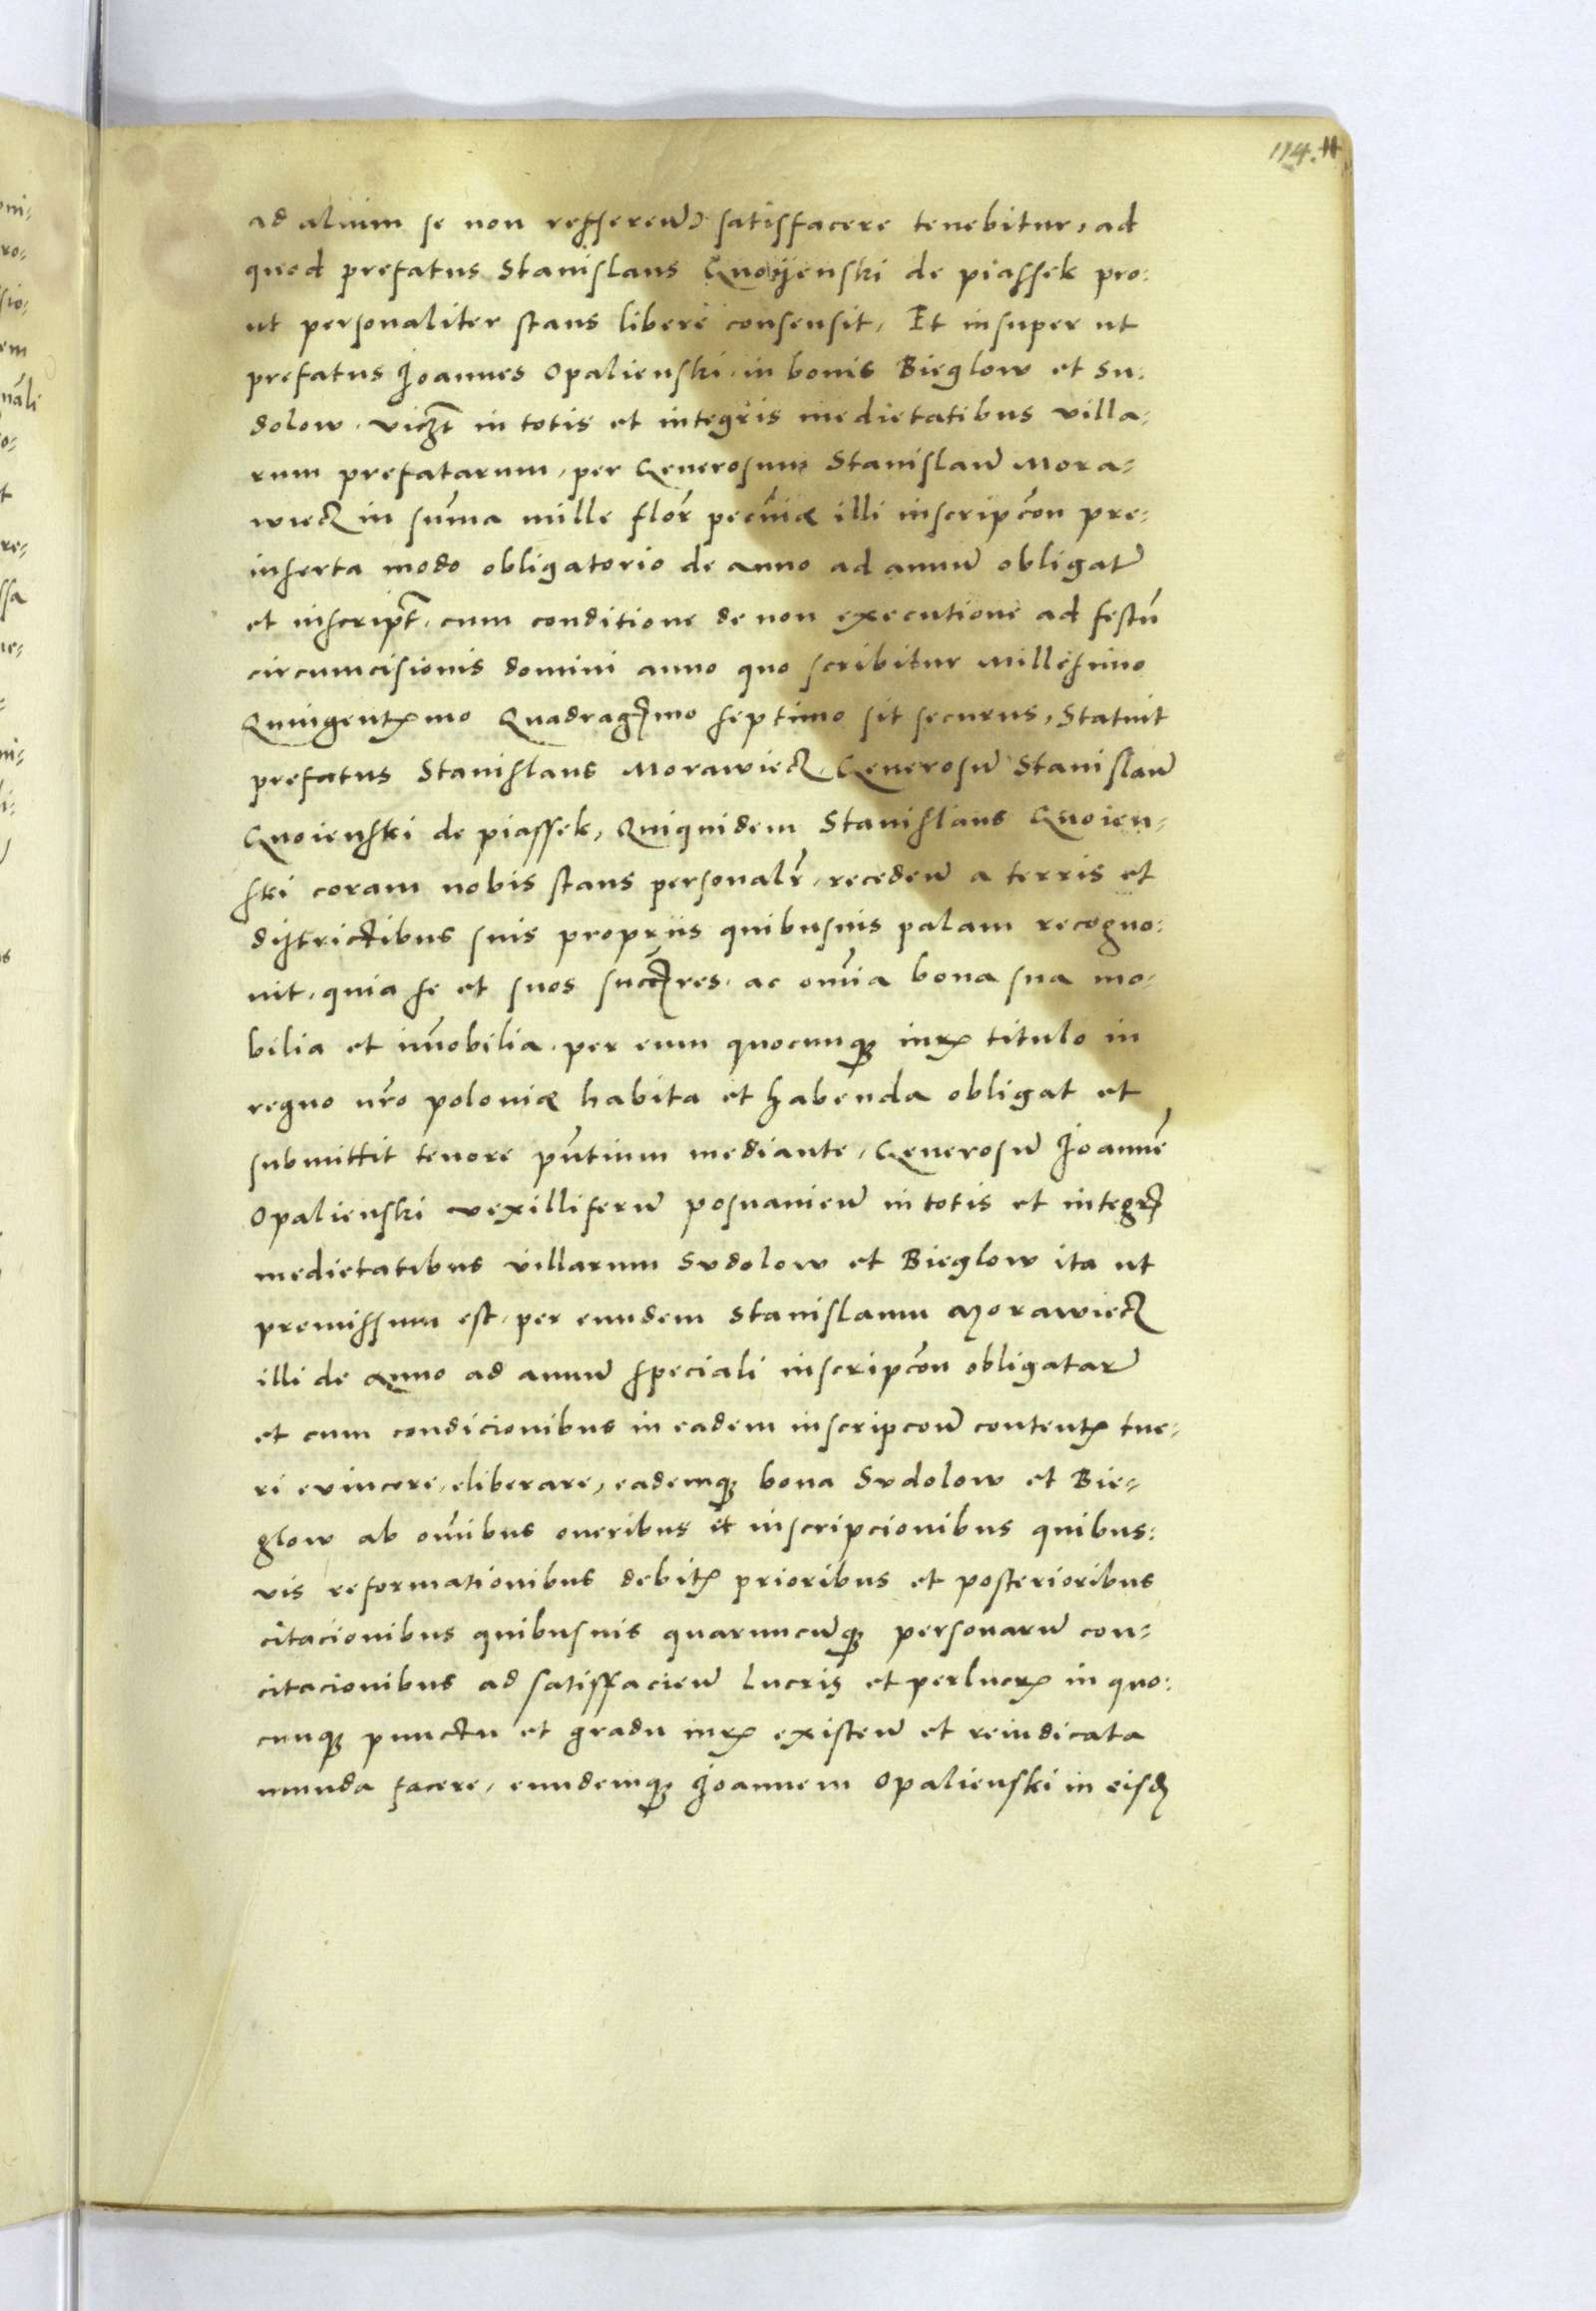 114.
ad alium se non refferen̄ satisfacere tenebitur, ad
quod prefatus Stanislaus Gnoyenski de piassek pro:
ut personaliter stans libere consensit, Et insuper ut
prefatus Joannes Opalienski in bonis Bieglow et Su:
dolow. viczt in totis et integris medietatibus villa-
rum prefatarum, per Generosum Stanislaū Mora-
wiecz in sum̄a mille flor̄ pecun̄iæ illi inscripcōn pre-
inserta modo obligatorio de anno ad annū obligat̄
et inscript̄. cum conditione de non executione ad festū
circumcisionis domini anno quo scribitur Millesimo
Quingentꝭmo Quadragꝭmo septimo sit securus, Statuit
prefatus Stanislaus Morawiecz, Generosū Stanislaū
Gnoienski de piassek, Quiquidem Stanislaus Gnoien-
ski coram nobis stans personalr̄, receden̄ a terris et
districtibus suis propriis quibusuis palam recogno:
uit, quia se et suos succꝭres. ac om̄ia bona sua mo-
bilia et im̄obilia. per eum quocunqꝫ iurꝭ titulo in
regno nr̄o poloniæ habita et habenda obligat et
submittit tenore pn̄tium mediante, Generosū Joannē
Opalienski vexilliferū posnanien̄ in totis et integrꝭ
medietatibus villarum Sudolow et Bieglow ita ut
premissum est, per eundem Stanislaum Morawiecz
illi de anno ad annū speciali inscripcōn obligatar̄
et cum condicionibus in eadem inscripcon̄ contentꝭ tue-
ri euincere, eliberare, eademqꝫ bona Sudolow et Bie-
glow ab om̄ibus oneribus et inscripcionibus quibus:
vis reformationibus debitꝭ prioribus et posterioribus
citacionibus quibusuis quaruncūqꝫ personarū con-
citacionibus ad satisfacien̄ lucris et perlucrꝭ in quo:
cunqꝫ punctu et gradu iurꝭ existen̄ et reiudicata
munda facere, eundemqꝫ Joannem Opalienski in eisđ